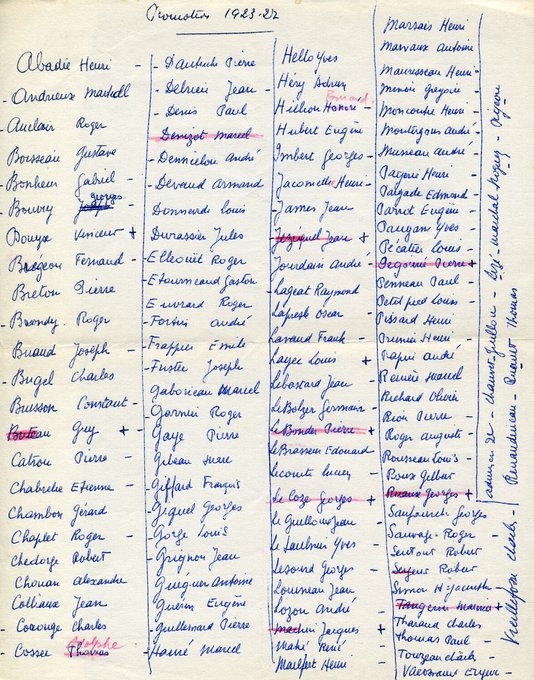 Promotion 1923-27
Abadie Henri -
- Andrieux Marshall
Auclair Roger
- Bousseau Gustave
- Bonheur Gabriel -
- Bouvry Georges
Bouyx Vincent +
Bregeon Fernand -
Breton Pierre
Briand Joseph -
Bugel Charles
Buisson Constant -
Buteau Guy +
Catrou Pierre -
Chabrelie Etienne -
Chambon Gérard
Chaplet Roger -
Chedorge Robert
Chouan Alexandre
Colliaux Jean
- Cocouge Charles
- Cossec Thomas
Adolphe
- Delrieu Jean -
- Denis Paul
- Denizot Marcel
- Dennielou André
- Devaud Armand
- Donnerde Louis
- Durassier Jules
- Elleouet Roger
- Etourneaud Gaston
- Euvrard Roger
- Fortin André
- Frappier Emile
- Fuster Joseph
- Gaborieau Marcel
- Garnier Roger
- Gaye Pierre
- Gibeau Marc
- Giffard François
- Giquel Georges
- Gorge Louis
- Grignon Jean
- Guéguen Antoine
- Guerin Eugène
- Guillemard Pierre
- Hamé Marcel
Hello Yves
Héry Adrien
Hillion Honoré
Fernand
Hubert Eugène
Imbert Georges -
Jacomette Henri -
James Jean
Jezequel Jean +
Jourdain André -
Lageat Raymond
Laurand Frank -
Layec Louis +
Lebastard Jean -
Le Bolzer Germain -
Le Bondu Pierre +
Le Brasseur Edouard
Lecomte Lucien -
Le Coze Georges +
Le Guellou Jean
Le Saulnier Yves
Lesourd Georges -
Lousseau Jean
Lozon André -
Machu Jacques +
Mahé René
Mailfert Henri -
Marsais Henri
Marvaux Antoine
Maurusseau Henri -
Menoir Grégoire -
Moncoutie Henri -
Montigous André -
Musseau André -
Pagerie Henri -
Palgade Edmond -
Parrot Eugène -
Paugam Yves -
Pécatier Louis -
Penneau Paul -
Petitpied Louis -
Pissard Henri
Prunier Henri -
Rapin André
Renée Marcel
Richard Olivier
Riou Pierre -
Roger Auguste -
Rousseau Louis -
Roux Gilbert
Ruaux Georges +
Sauvage Roger -
Sentout Robert
Simon Hyacinthe
Tanguy Marcel +
Tharaud Charles
Thomas Paul -
Touzeau Charles -